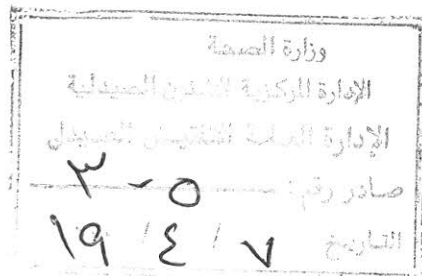 وزارة الصحة
الإدارة المركزية للشئون الصيدلية
الإدارة العامة للتفتيش الصيدلى
صادر رقم: ٣-٥
التاريخ ٧ / ٤ / ١٩